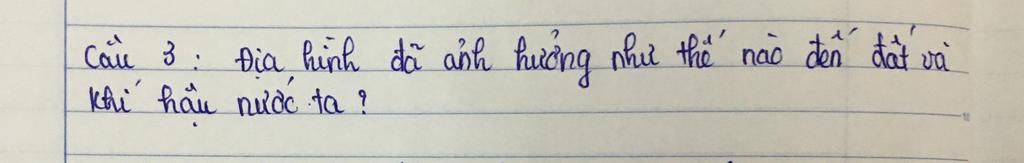 Câu 3 : Địa hình đã ảnh hưởng như thế nào đến đất và
khí hậu nước ta ?